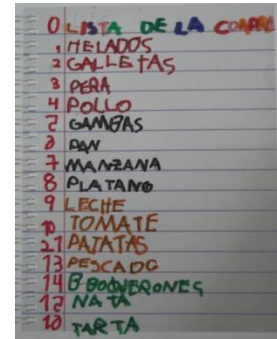 0 LISTA DE LA COMPRA
1 HELADOS
2 GALLETAS
3 PERA
4 POLLO
5 GAMBAS
6 PAN
7 MANZANA
8 PLATANO
9 LECHE
10 TOMATE
21 PATATAS
13 PESCADO
14 BOQUERONES
12 NATA
10 TARTA